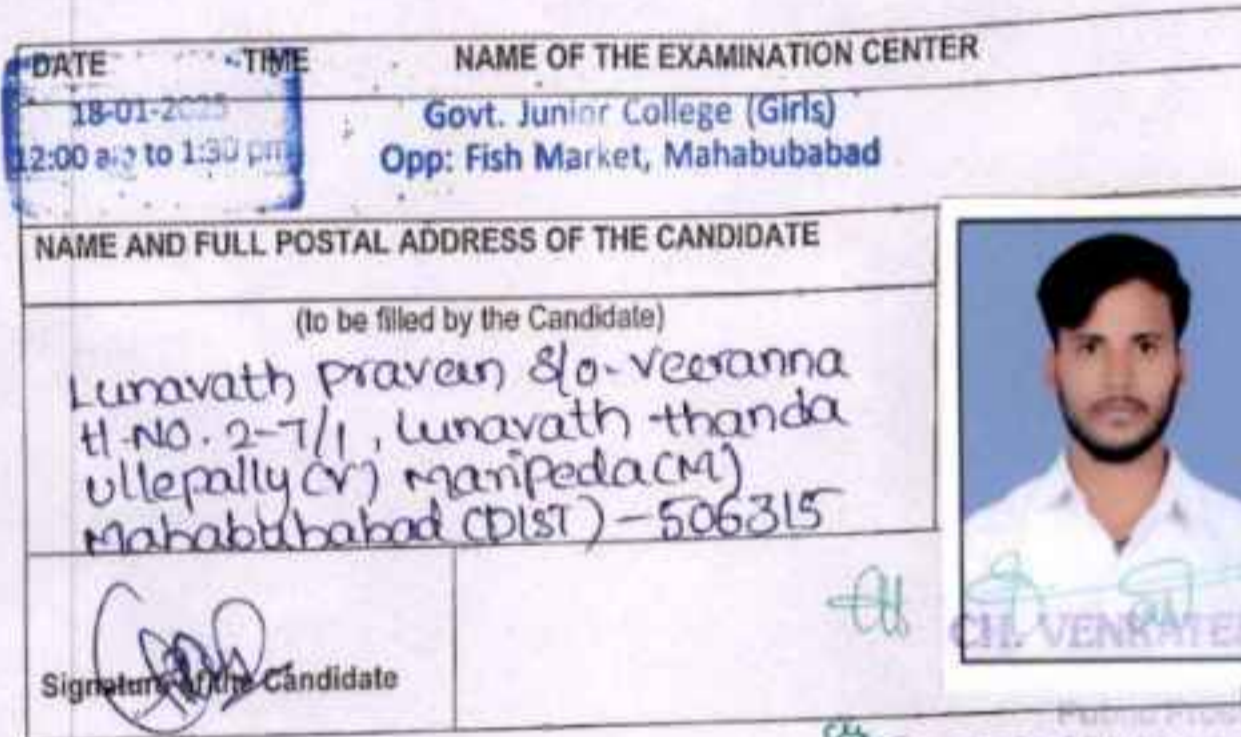 DATE TIME NAME OF THE EXAMINATION CENTER
18-01-2025 Govt. Junior College (Girls)
12:00 to 1:30 pm Opp: Fish Market, Mahabubabad
NAME AND FULL POSTAL ADDRESS OF THE CANDIDATE
(to be filled by the Candidate)
Lunavath praveen S/o. Veeranna
H.NO. 2-7/1, Lunavath thanda
Ullepally (V) Maripeda (M)
Mahabubabad (DIST) - 506315
Signature of the Candidate
CH. VENKATE
Public